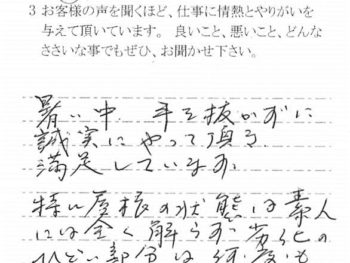 3 お客様の声を聞くほど、仕事に情熱とやりがいを
与えて頂いています。 良いこと、悪いこと、どんな
ささいな事でもぜひ、お聞かせ下さい。
暑い中 手を抜かずに
誠実にやって頂き
満足しています。
特に屋根の状態は素人
には全く解らず劣化の
ひどい部分は何度も